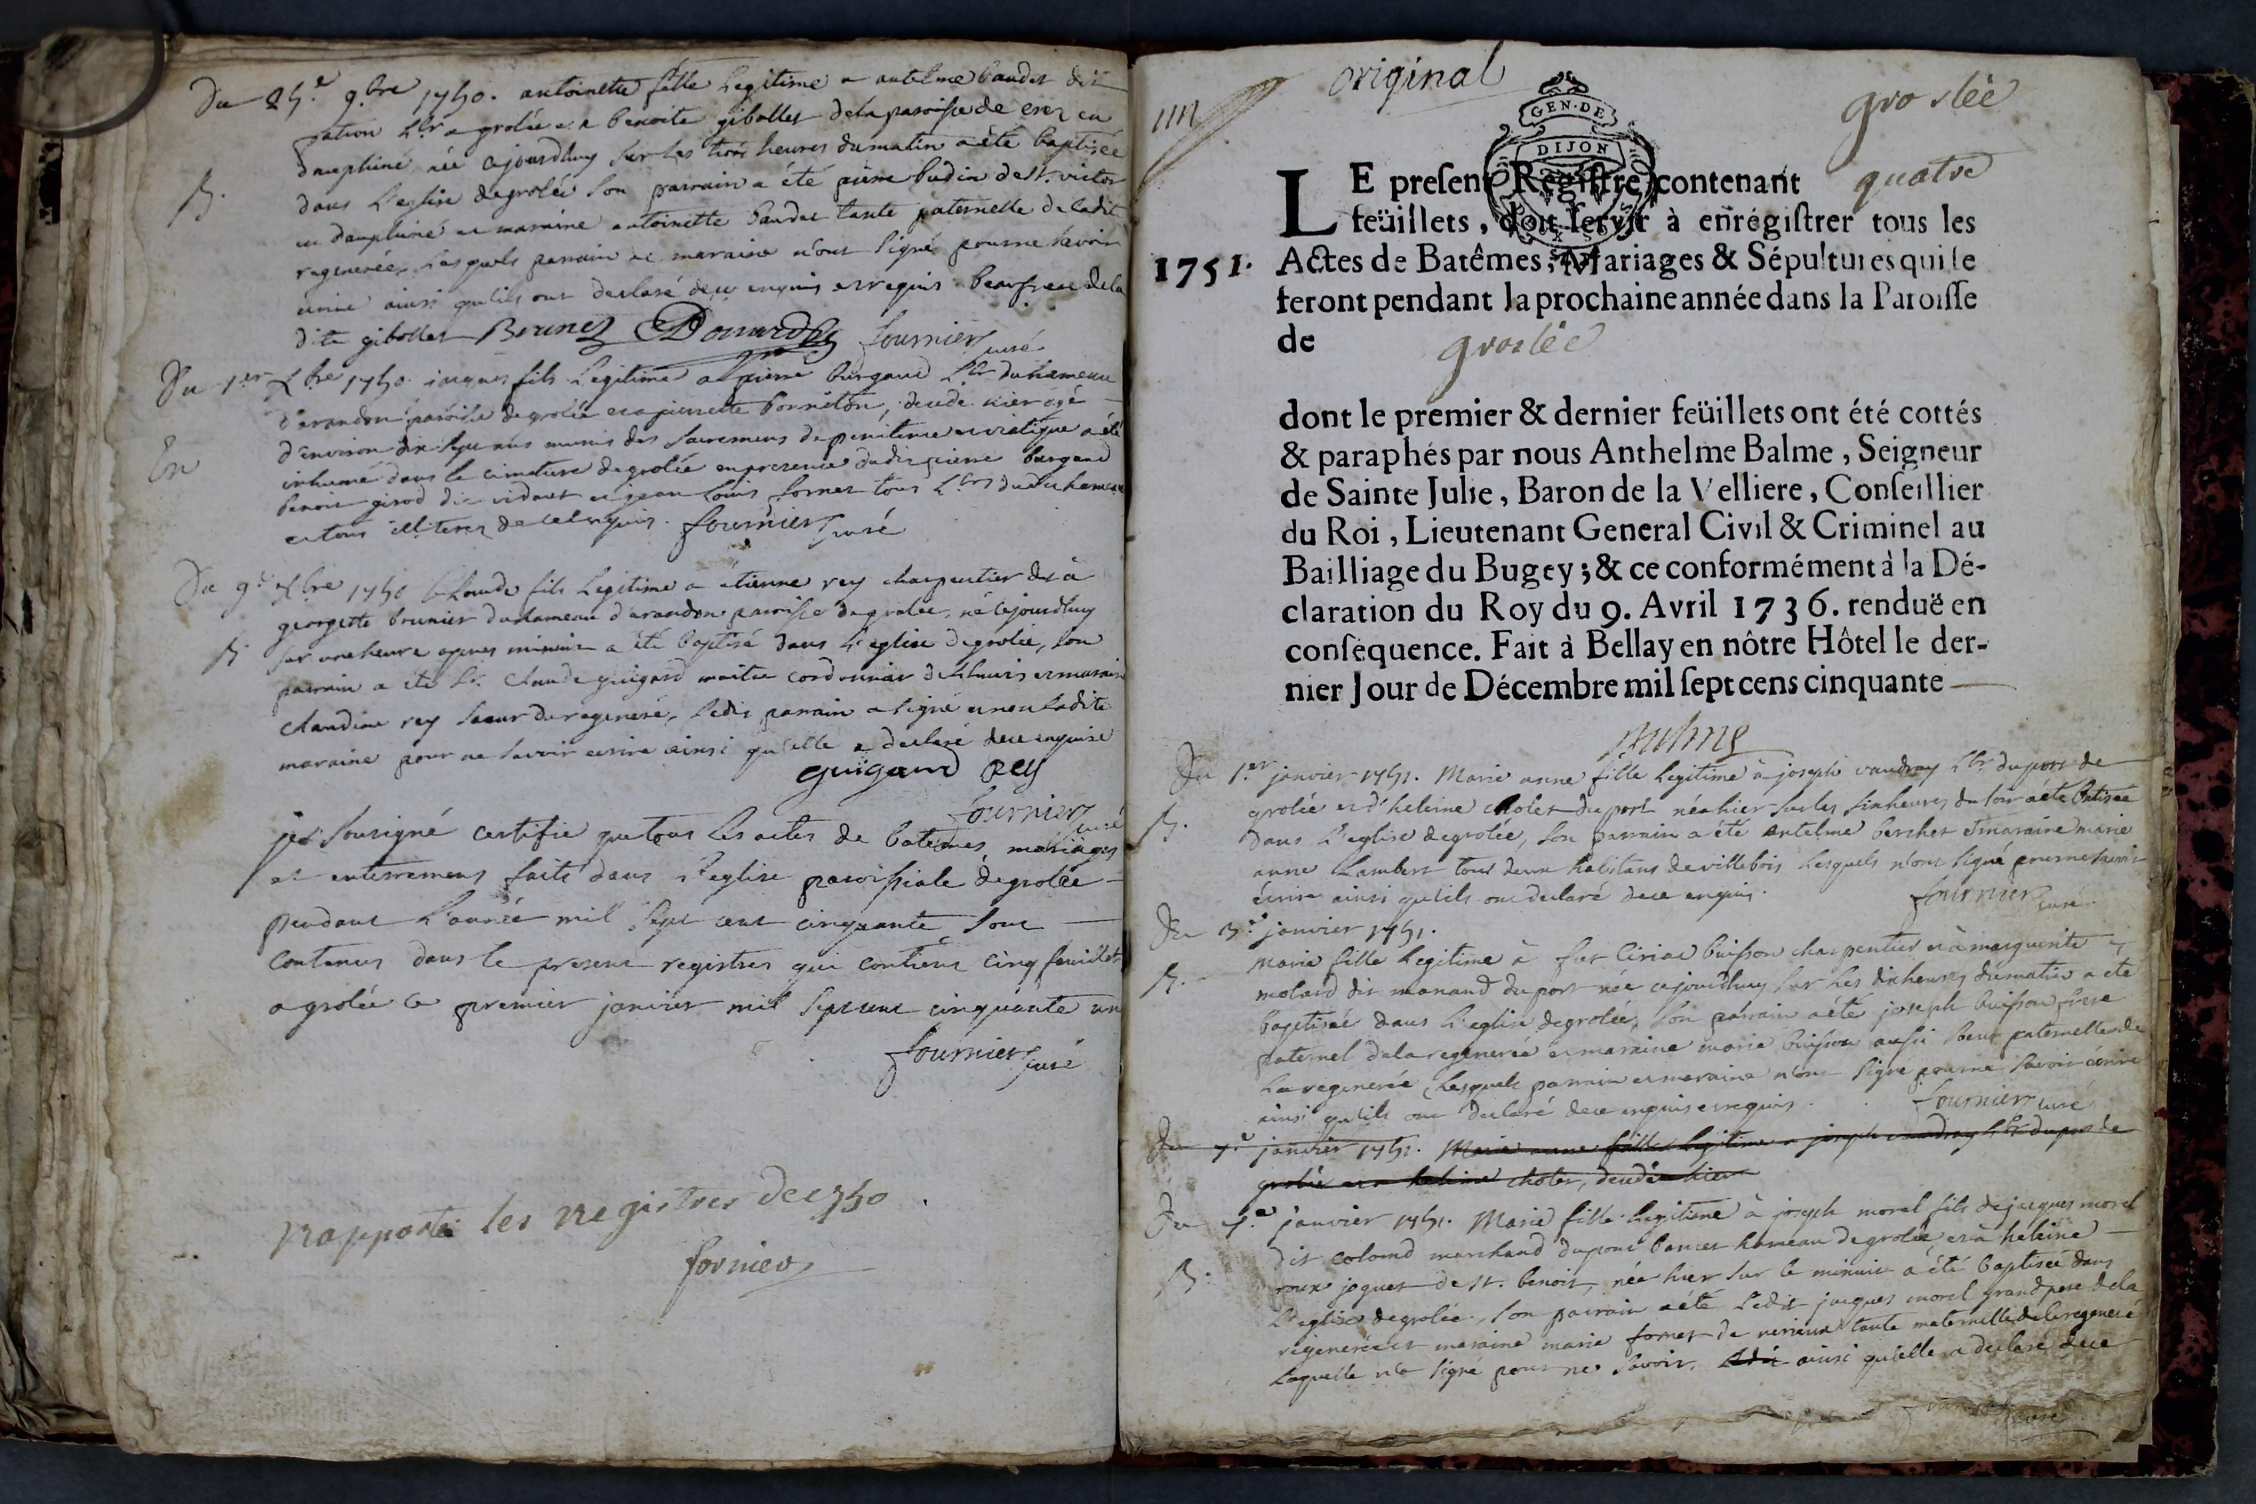 Du 25.e 9.bre 1750. antoinette fille Legitime a antelme baudet dit
pation L.br a grolée et a benoite giballet de la paroisse de crez en
dauphiné née ajourdhuy sur les trois heures du matin a été baptisée
B.
dans L'eglise de grolée son parrain a été pierre budin de st. victor
en dauphiné et maraine antoinette baudet tante paternelle de ladite
regenerée, Lesquels parrain et maraine n'ont signé pour ne savoir
écrire ainsi qu'ils ont declaré de ce enquis et requis beaufrere de la
dite giballet Brunet fournier curé
Du 1.er Xbre 1750. jacques fils Legitime a pierre burgaud L.br du hameau
d'arandon paroisse de grolée et a pierrette bonneton, decedé hier agé
En
d'environ dix sept ans munis des sacremens de penitence et viatique a été
inhumé dans le cimetiere de grolée en presence dudit pierre burgaud
benoit girod dit vidout et jean Louis fornet tous L.brs dudit hameau
et tous illiterez de ce enquis. fournier curé
Du 9.e Xbre 1750 Claude fils Legitime a étienne rey charpentier et à
georgette brunier du hameau d'arandon paroisse de grolée, né cejourdhuy
B
sur une heure apres minuit a été baptisé dans L'eglise de grolée, son
parrain a été Sr. Claude guigard maitre cordonnier de Lhuis et maraine
claudine rey soeur du regeneré, Ledit parrain a signé et non ladite
maraine pour ne savoir écrire ainsi qu'elle a declaré de ce enquise
guigard Rey
fournier curé
je Sousigné certifie que tous les actes de batemes mariages
et enterremens faits dans L'eglise paroissiale de grolée
pendant L'année mil sept cent cinquante sont
contenus dans le present registres qui contient cinq feuillets
a grolée ce premier janvier mil sept cent cinquante un
fournier curé
Rapporté les Registres de 1750
fornier
original
groslée
GEN. DE
DIJON
LE present Registre contenant quatre
feüillets, doit servir à enrégistrer tous les
1751. Actes de Batêmes, Mariages & Sépultures qui se
feront pendant la prochaine année dans la Paroisse
de groslée
dont le premier & dernier feüillets ont été cottés
& paraphés par nous Anthelme Balme, Seigneur
de Sainte Julie, Baron de la Velliere, Conseillier
du Roi, Lieutenant General Civil & Criminel au
Bailliage du Bugey; & ce conformément à la Dé-
claration du Roy du 9. Avril 1736. renduë en
consequence. Fait à Bellay en nôtre Hôtel le der-
nier Jour de Décembre mil sept cens cinquante
Balme
Du 1.er janvier 1751. Marie anne fille Legitime à joseph vaudray L.br du port de
grolée et d'heleine cholet du port née hier sur les six heures du soir a été batisée
B.
dans L'eglise de grolée, son parrain a été antelme berchet et maraine marie
anne Lambert tous deux habitans de villebois Lesquels n'ont signé pour ne savoir
écrire ainsi qu'ils ont declaré de ce enquis. fournier curé
Du 3.e janvier 1751.
Marie fille Legitime à feu Ciriac buisson charpentier et à marguerite
B.
molard dit manaud du port née cejourdhuy sur les dix heures du matin a été
baptisée dans L'eglise de grolée, son parrain a été joseph buisson frere
paternel de la regenerée et maraine marie buisson aussi soeur paternelle de
La regenerée, Lesquels parrain et maraine n'ont signé pour ne savoir écrire
ainsi qu'ils ont declaré de ce enquis et requis. fournier curé
Du 7.e janvier 1751. Marie anne fille Legitime a joseph vaudray L.br du port de
grolée et a heleine cholet, decedée hier
Du 7.e janvier 1751. Marie fille Legitime à joseph morel fils de jacques morel
dit colomd marchand du pont bancet hameau de grolée et à heleine
B.
roux joguet de st. benoit, née hier sur le minuit a été baptisée dans
L'eglise de grolée, son parrain a été Ledit jacques morel grand pere de la
regenerée et maraine marie fornet de nerieux tante maternelle de la regeneré
Laquelle n'a signé pour ne savoir, ainsi qu'elle a declaré de ce
curé